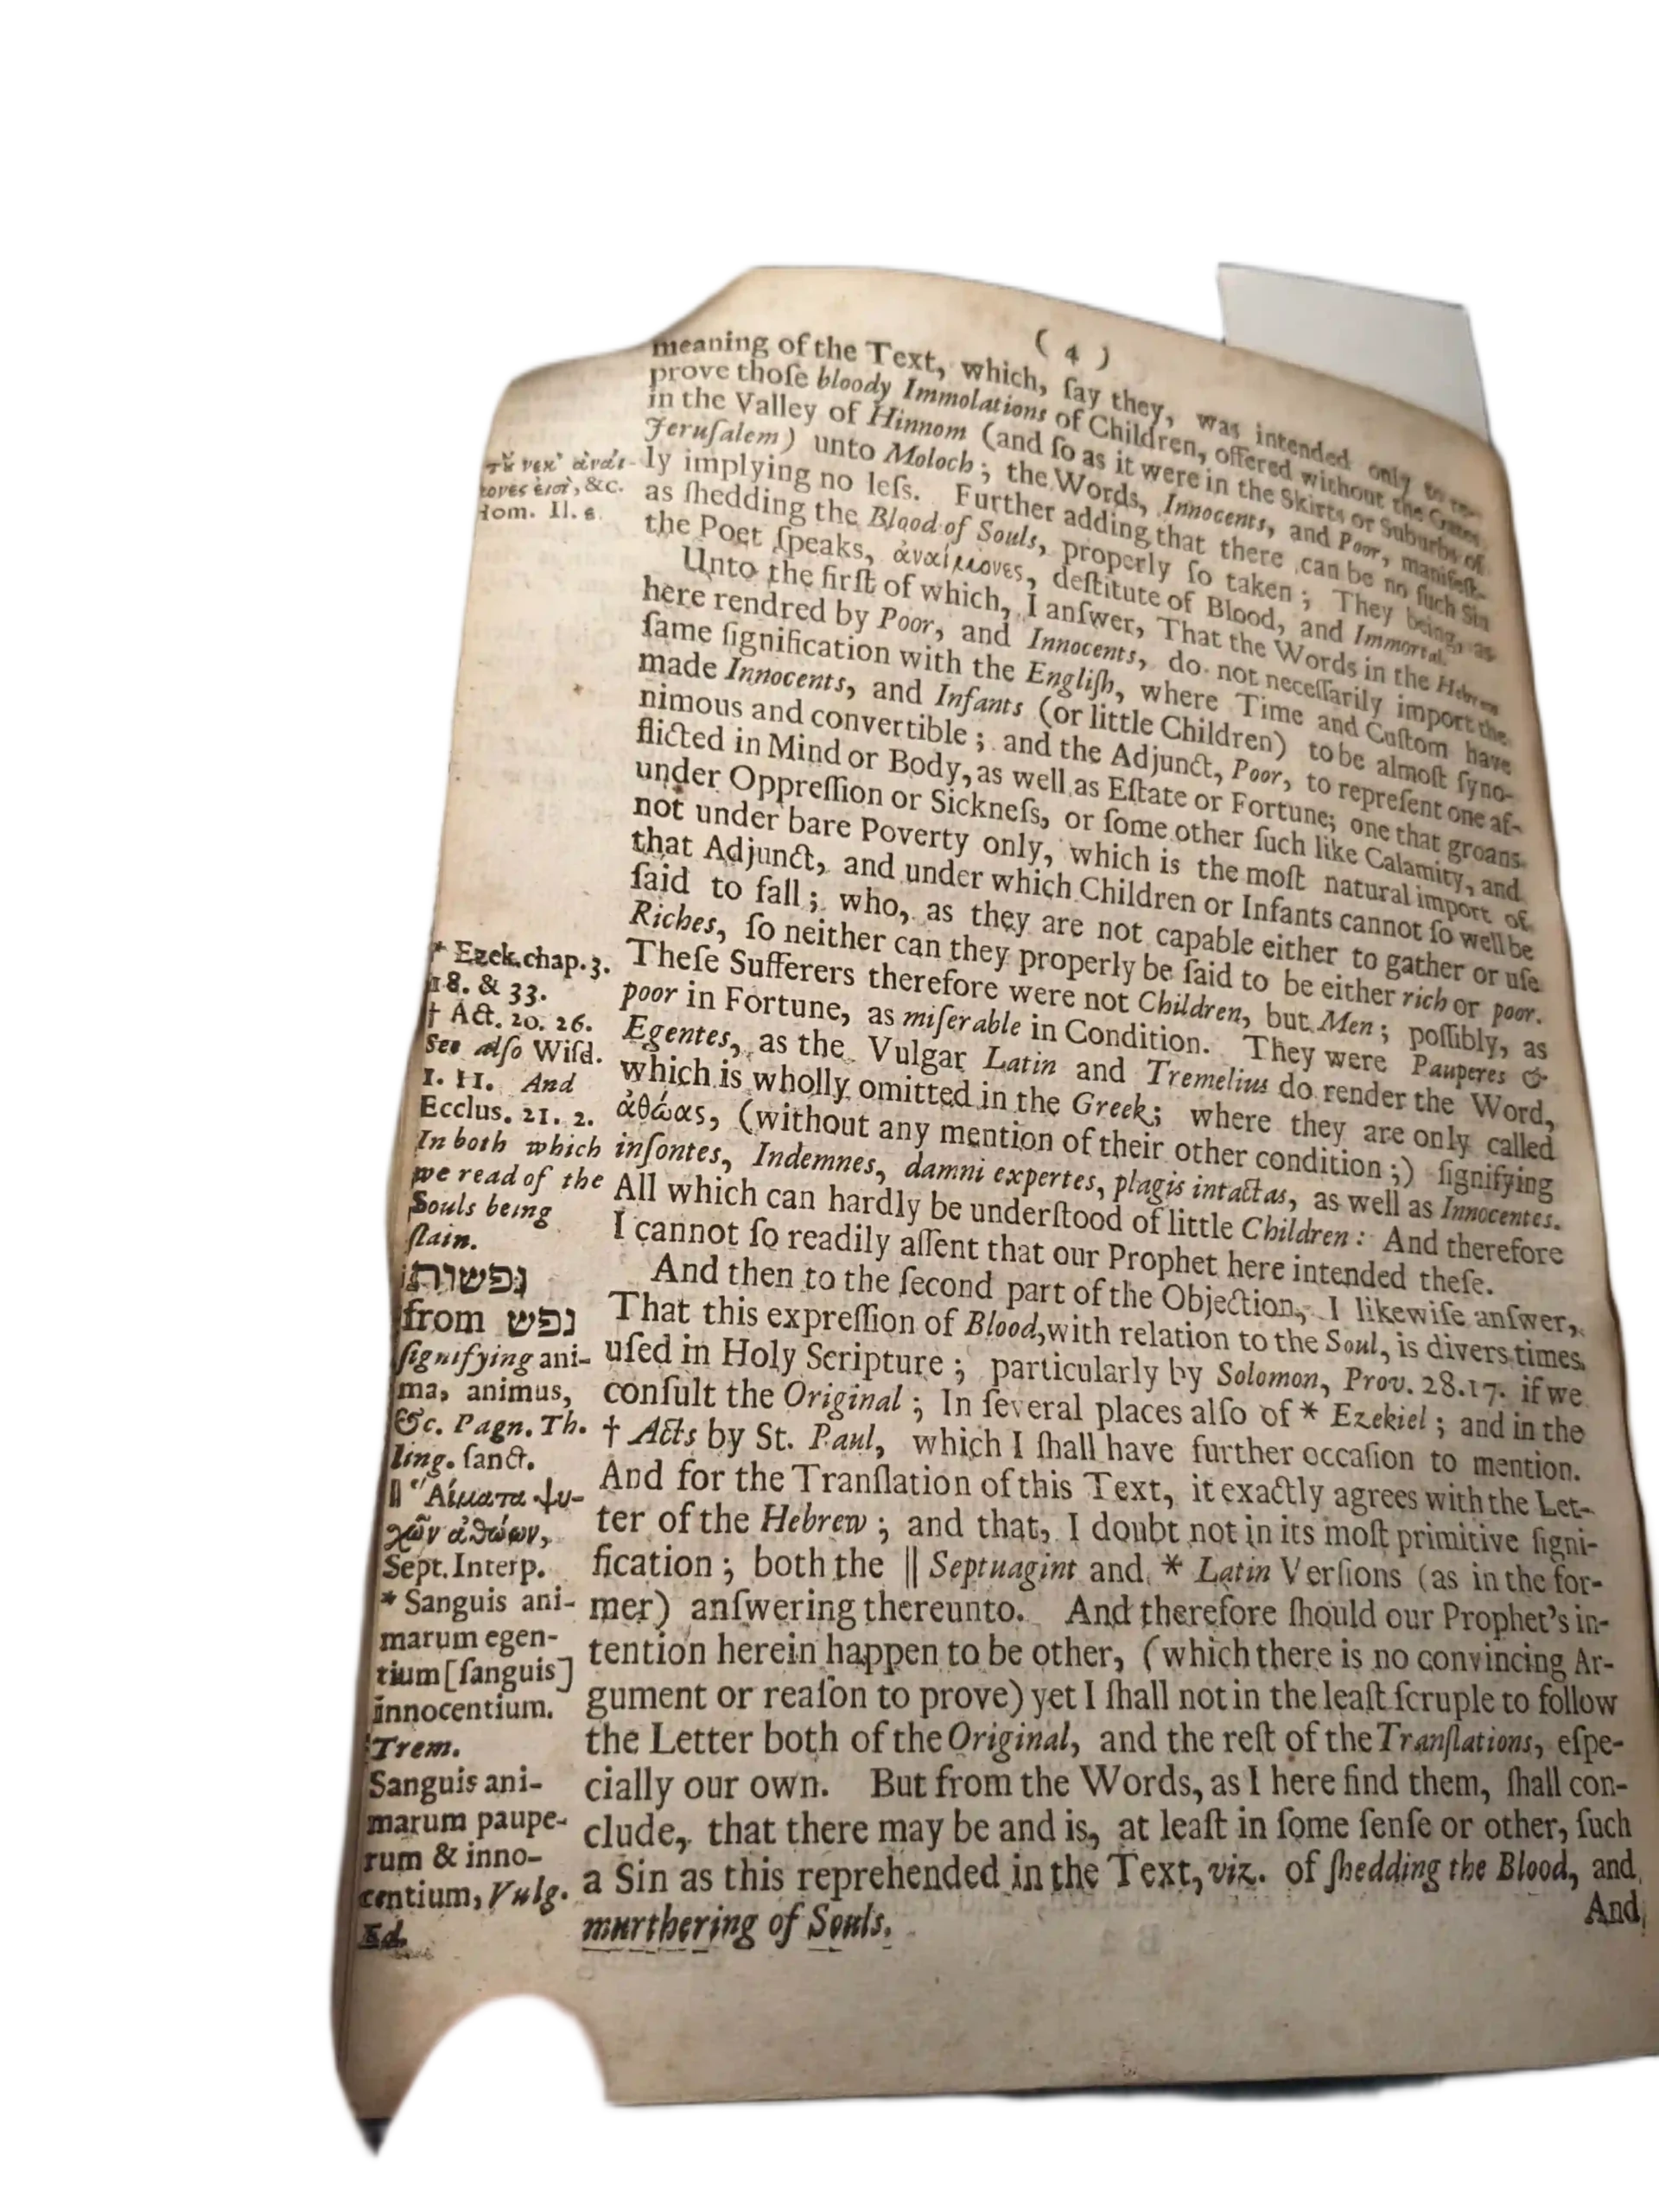 ( 4 )
meaning of the Text, which, ſay they, was intended only to re-
prove thoſe bloody Immolations of Children, offered without the Gates
in the Valley of Hinnom (and ſo as it were in the Skirts or Suburbs of
Jeruſalem) unto Moloch; the Words, Innocents, and Poor, manifeſt-
ly implying no leſs. Further adding that there can be no ſuch Sin
as ſhedding the Blood of Souls, properly ſo taken; They being, as
the Poet ſpeaks, ἀναίμονες, deſtitute of Blood, and Immortal.
Unto the firſt of which, I anſwer, That the Words in the Hebrew
here rendred by Poor, and Innocents, do not neceſſarily import the
ſame ſignification with the Engliſh, where Time and Cuſtom have
made Innocents, and Infants (or little Children) to be almoſt ſyno-
nimous and convertible; and the Adjunct, Poor, to repreſent one af-
flicted in Mind or Body, as well as Eſtate or Fortune; one that groans
under Oppreſſion or Sickneſs, or ſome other ſuch like Calamity, and
not under bare Poverty only, which is the moſt natural import of
that Adjunct, and under which Children or Infants cannot ſo well be
ſaid to fall; who, as they are not capable either to gather or uſe
Riches, ſo neither can they properly be ſaid to be either rich or poor.
Theſe Sufferers therefore were not Children, but Men; poſſibly, as
poor in Fortune, as miſerable in Condition. They were Pauperes &
Egentes, as the Vulgar Latin and Tremelius do render the Word,
which is wholly omitted in the Greek; where they are only called
ἀθώας, (without any mention of their other condition;) ſignifying
inſontes, Indemnes, damni expertes, plagis intactas, as well as Innocentes.
All which can hardly be underſtood of little Children: And therefore
I cannot ſo readily aſſent that our Prophet here intended theſe.
And then to the ſecond part of the Objection, I likewiſe anſwer,
That this expreſſion of Blood, with relation to the Soul, is divers times
uſed in Holy Scripture; particularly by Solomon, Prov. 28.17. if we
conſult the Original; In ſeveral places alſo of * Ezekiel; and in the
† Acts by St. Paul, which I ſhall have further occaſion to mention.
And for the Tranſlation of this Text, it exactly agrees with the Let-
ter of the Hebrew; and that, I doubt not in its moſt primitive ſigni-
fication; both the || Septuagint and * Latin Verſions (as in the for-
mer) anſwering thereunto. And therefore ſhould our Prophet's in-
tention herein happen to be other, (which there is no convincing Ar-
gument or reaſon to prove) yet I ſhall not in the leaſt ſcruple to follow
the Letter both of the Original, and the reſt of the Tranſlations, eſpe-
cially our own. But from the Words, as I here find them, ſhall con-
clude, that there may be and is, at leaſt in ſome ſenſe or other, ſuch
a Sin as this reprehended in the Text, viz. of ſhedding the Blood, and
murthering of Souls.
And
&c.
Hom. Il. ε.
* Ezek. chap. 3.
18. & 33.
† Act. 20. 26.
See alſo Wiſd.
1. 11. And
Ecclus. 21. 2.
In both which
we read of the
Souls being
ſlain.
נפשות
from נפש
ſignifying ani-
ma, animus,
&c. Pagn. Th.
ling. ſanct.
|| Αἵματα ψυ-
χῶν ἀθώων,
Sept. Interp.
* Sanguis ani-
marum egen-
tium [ſanguis]
innocentium.
Trem.
Sanguis ani-
marum paupe-
rum & inno-
centium, Vulg.
Ed.